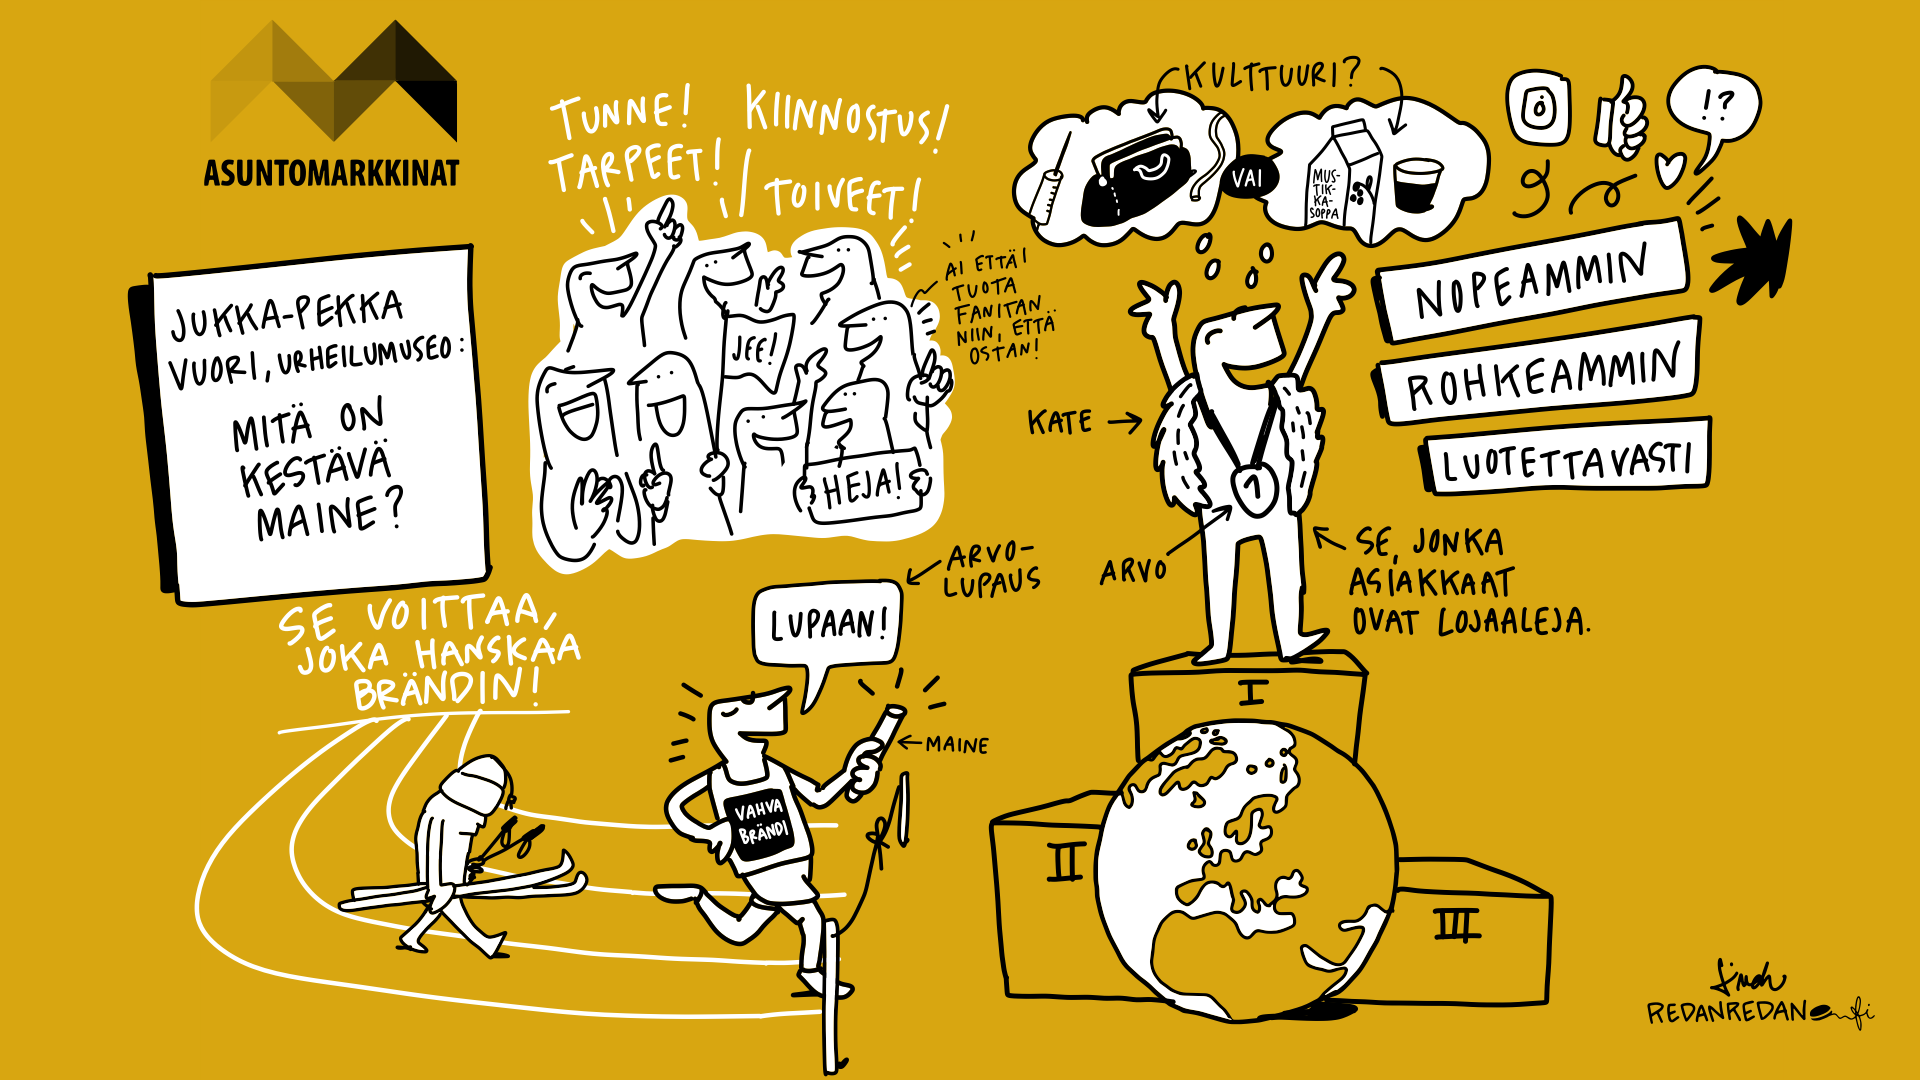 ASUNTOMARKKINAT
JUKKA-PEKKA
VUORI, URHEILUMUSEO:
MITÄ ON
KESTÄVÄ
MAINE?
TUNNE!
KIINNOSTUS!
TARPEET!
TOIVEET!
JEE!
HEJA!
AI ETTÄ!
TUOTA
FANITAN
NIIN, ETTÄ
OSTAN!
KULTTUURI?
VAI
MUS-
TIK-
KA-
SOPPA
!?
NOPEAMMIN
ROHKEAMMIN
LUOTETTAVASTI
KATE
1
ARVO
SE, JONKA
ASIAKKAAT
OVAT LOJAALEJA.
SE VOITTAA,
JOKA HANSKAA
BRÄNDIN!
LUPAAN!
ARVO-
LUPAUS
MAINE
VAHVA
BRÄNDI
I
II
III
REDANREDAN.fi